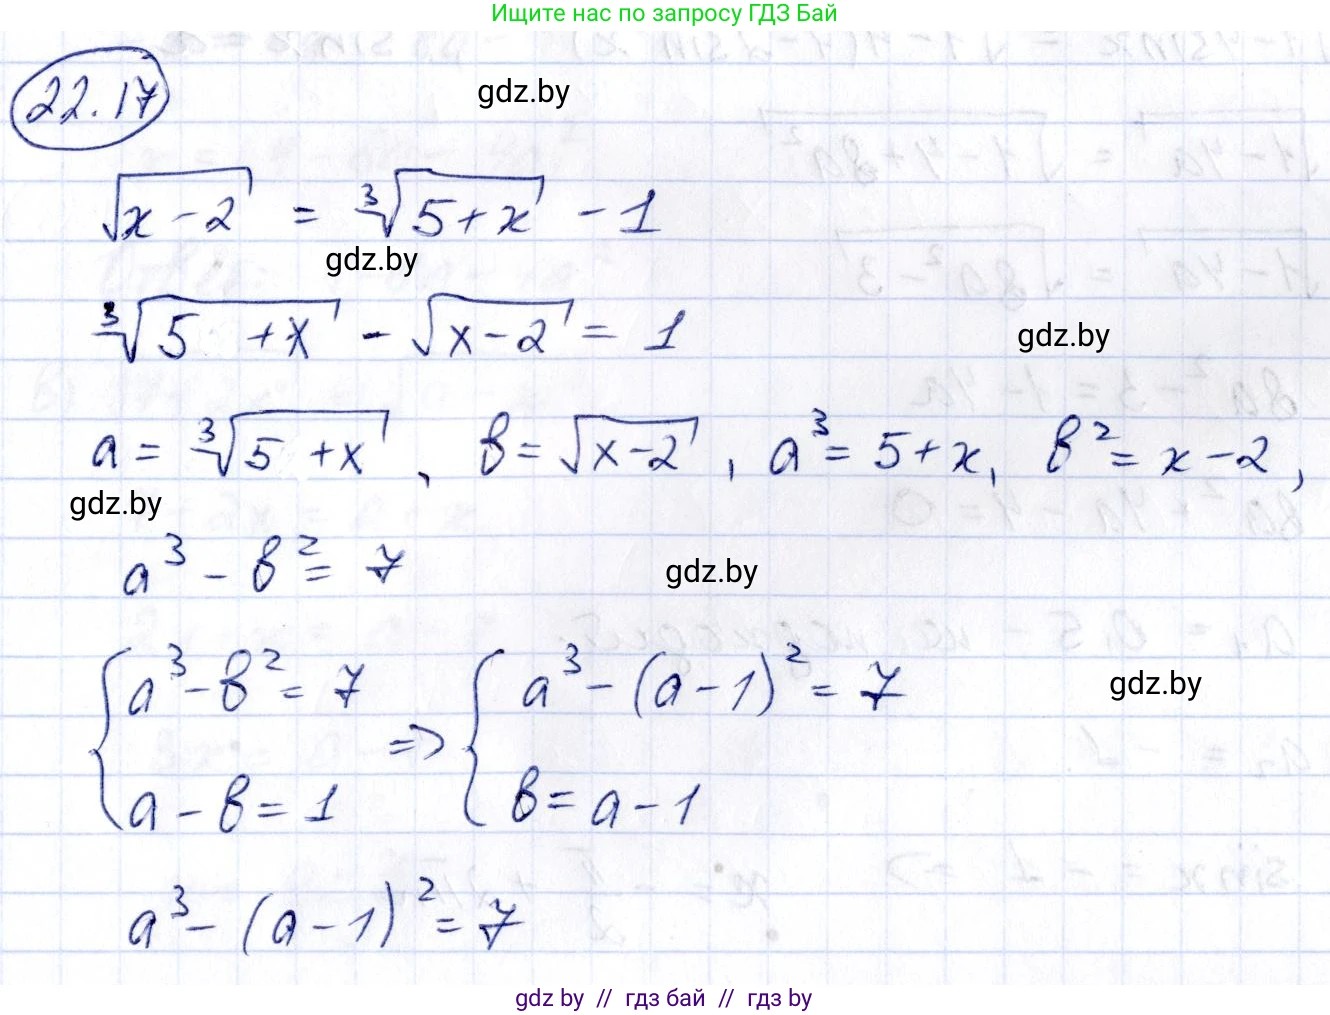 Ищите нас по запросу ГДЗ Бай
22.17
gdz.by
√(x-2) = ∛(5+x) - 1
gdz.by
∛(5+x) - √(x-2) = 1
gdz.by
a = ∛(5+x), b = √(x-2), a³ = 5+x, b² = x-2,
gdz.by
a³ - b² = 7
gdz.by
{ a³ - b² = 7 => { a³ - (a-1)² = 7
gdz.by
a - b = 1 b = a - 1
a³ - (a-1)² = 7
gdz by // гдз бай // гдз by